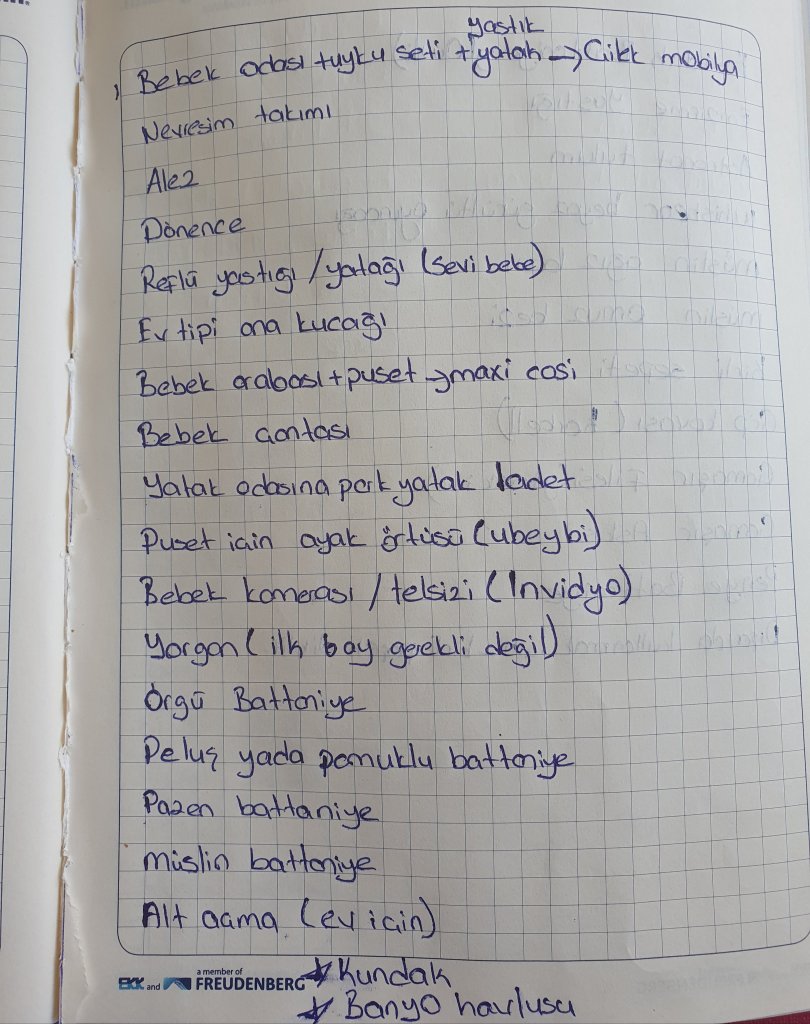 yastık
, Bebek odası uyku seti + yatak → Cilek mobilya
Nevresim takımı
Alez
Dönence
Reflü yastığı / yatağı (sevi bebe)
Ev tipi ana kucağı
Bebek arabası + puset → maxi cosi
Bebek çantası
Yatak odasına park yatak 1 adet
Puset için ayak örtüsü (ubeybi)
Bebek kamerası / telsizi (Invidyo)
Yorgan (ilk 6 ay gerekli değil)
Örgü Battaniye
Peluş yada pamuklu battaniye
Pazen battaniye
müslin battaniye
Alt açma (ev için)
EKK and a member of FREUDENBERG
* Kundak
* Banyo havlusu